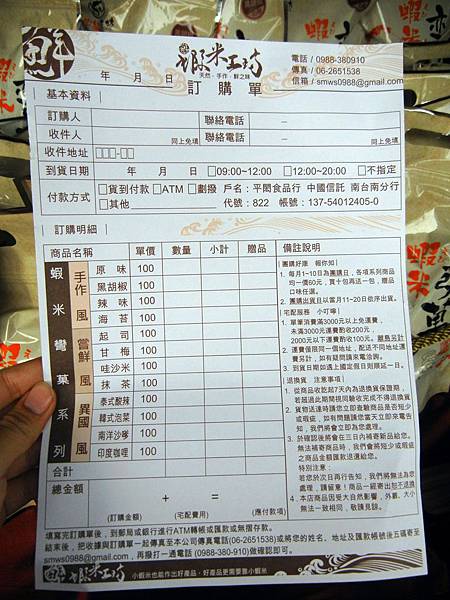 鮮
蝦米工坊
天然・手作・鮮之味
訂購單
年 月 日
電話 / 0988-380910
傳真 / 06-2651538
信箱 / smws0988@gmail.com
基本資料
訂購人 聯絡電話 –
收件人 同上免填 聯絡電話 – 同上免填
收件地址 □□□-□□
到貨日期 年 月 日 □09:00~12:00 □12:00~20:00 □不指定
付款方式 □貨到付款 □ATM □劃撥 戶名:平閣食品行 中國信託 南台南分行
□其他 代號:822 帳號:137-54012405-0
訂購明細
商品名稱 單價 數量 小計 贈品 備註說明
蝦米彎菓系列
手作風
原味 100
黑胡椒 100
辣味 100
海苔 100
嘗鮮風
起司 100
甘梅 100
哇沙米 100
抹茶 100
異國風
泰式酸辣 100
韓式泡菜 100
南洋沙嗲 100
印度咖哩 100
合計
總金額 + =
(訂購金額) (宅配費用) (應付款項)
|團購好康 報你知|
1. 每月1~10日為團購日,各項系列商品
均一價60元,買十包再送一包,贈品
口味任選。
2. 團購出貨日以當月11~20日依序出貨。
|宅配服務 小叮嚀|
1. 單筆消費滿3000元以上免運費,
未滿3000元運費酌收200元,
2000元以下運費酌收100元。離島另計
2. 運費僅限同一個地址,配送不同地址運
費另計,如有疑問請來電洽詢。
3. 到貨日期如遇上國定假日則順延一日。
|退換貨 注意事項|
1. 從商品收訖起7天內為退換貨保證期,
若超過此期間視同驗收完成不得退換貨
2. 貨物送達時請您立即查驗商品是否短少
或瑕疵,如有問題請您當天立即來電告
知,我們將會立即為您處理。
3. 於確認後將會在三日內補寄新品給您。
無法補寄商品時,我們會將短少或瑕疵
之商品金額匯款退還給您。
特別注意:
若您於次日再行告知,我們將無法為您
處理,請顧留意!商品一經寄出恕不退換
4. 本店商品因受大自然影響,外觀、大小
無法一致相同,敬請見諒。
填寫完訂購單後,到郵局或銀行進行ATM轉帳或匯款或無摺存款。
結束後,把收據與訂購單一起傳真至本公司傳真電話(06-2651538)或將您的姓名、地址及匯款帳號後五碼寄至
smws0988@gmail.com,再撥打一通電話 (0988-380-910)做確認即可。
蝦米工坊 小蝦米也能作出好產品,好產品更需要靠小蝦米